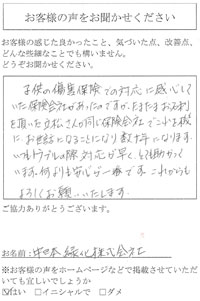 お客様の声をお聞かせください
お客様の感じた良かったこと、気づいた点、改善点、
どんな些細なことでも構いません。
どうぞお聞かせください。
子供の傷害保険での対応に感心して
いた保険会社があったのですが、たまたまお名刺
を頂いた立松さんが同じ保険会社でこれを機
にお世話になることになり数十年になります。
いつもトラブルの際、対応が早く、とても助かって
います。何よりも安心が一番です。これからも
よろしくお願いいたします。
ご協力ありがとうございます。
お名前：中日本緑化株式会社
※お客様の声をホームページなどで掲載させていただ
いても宜しいでしょうか
☑はい □イニシャルで □ダメ